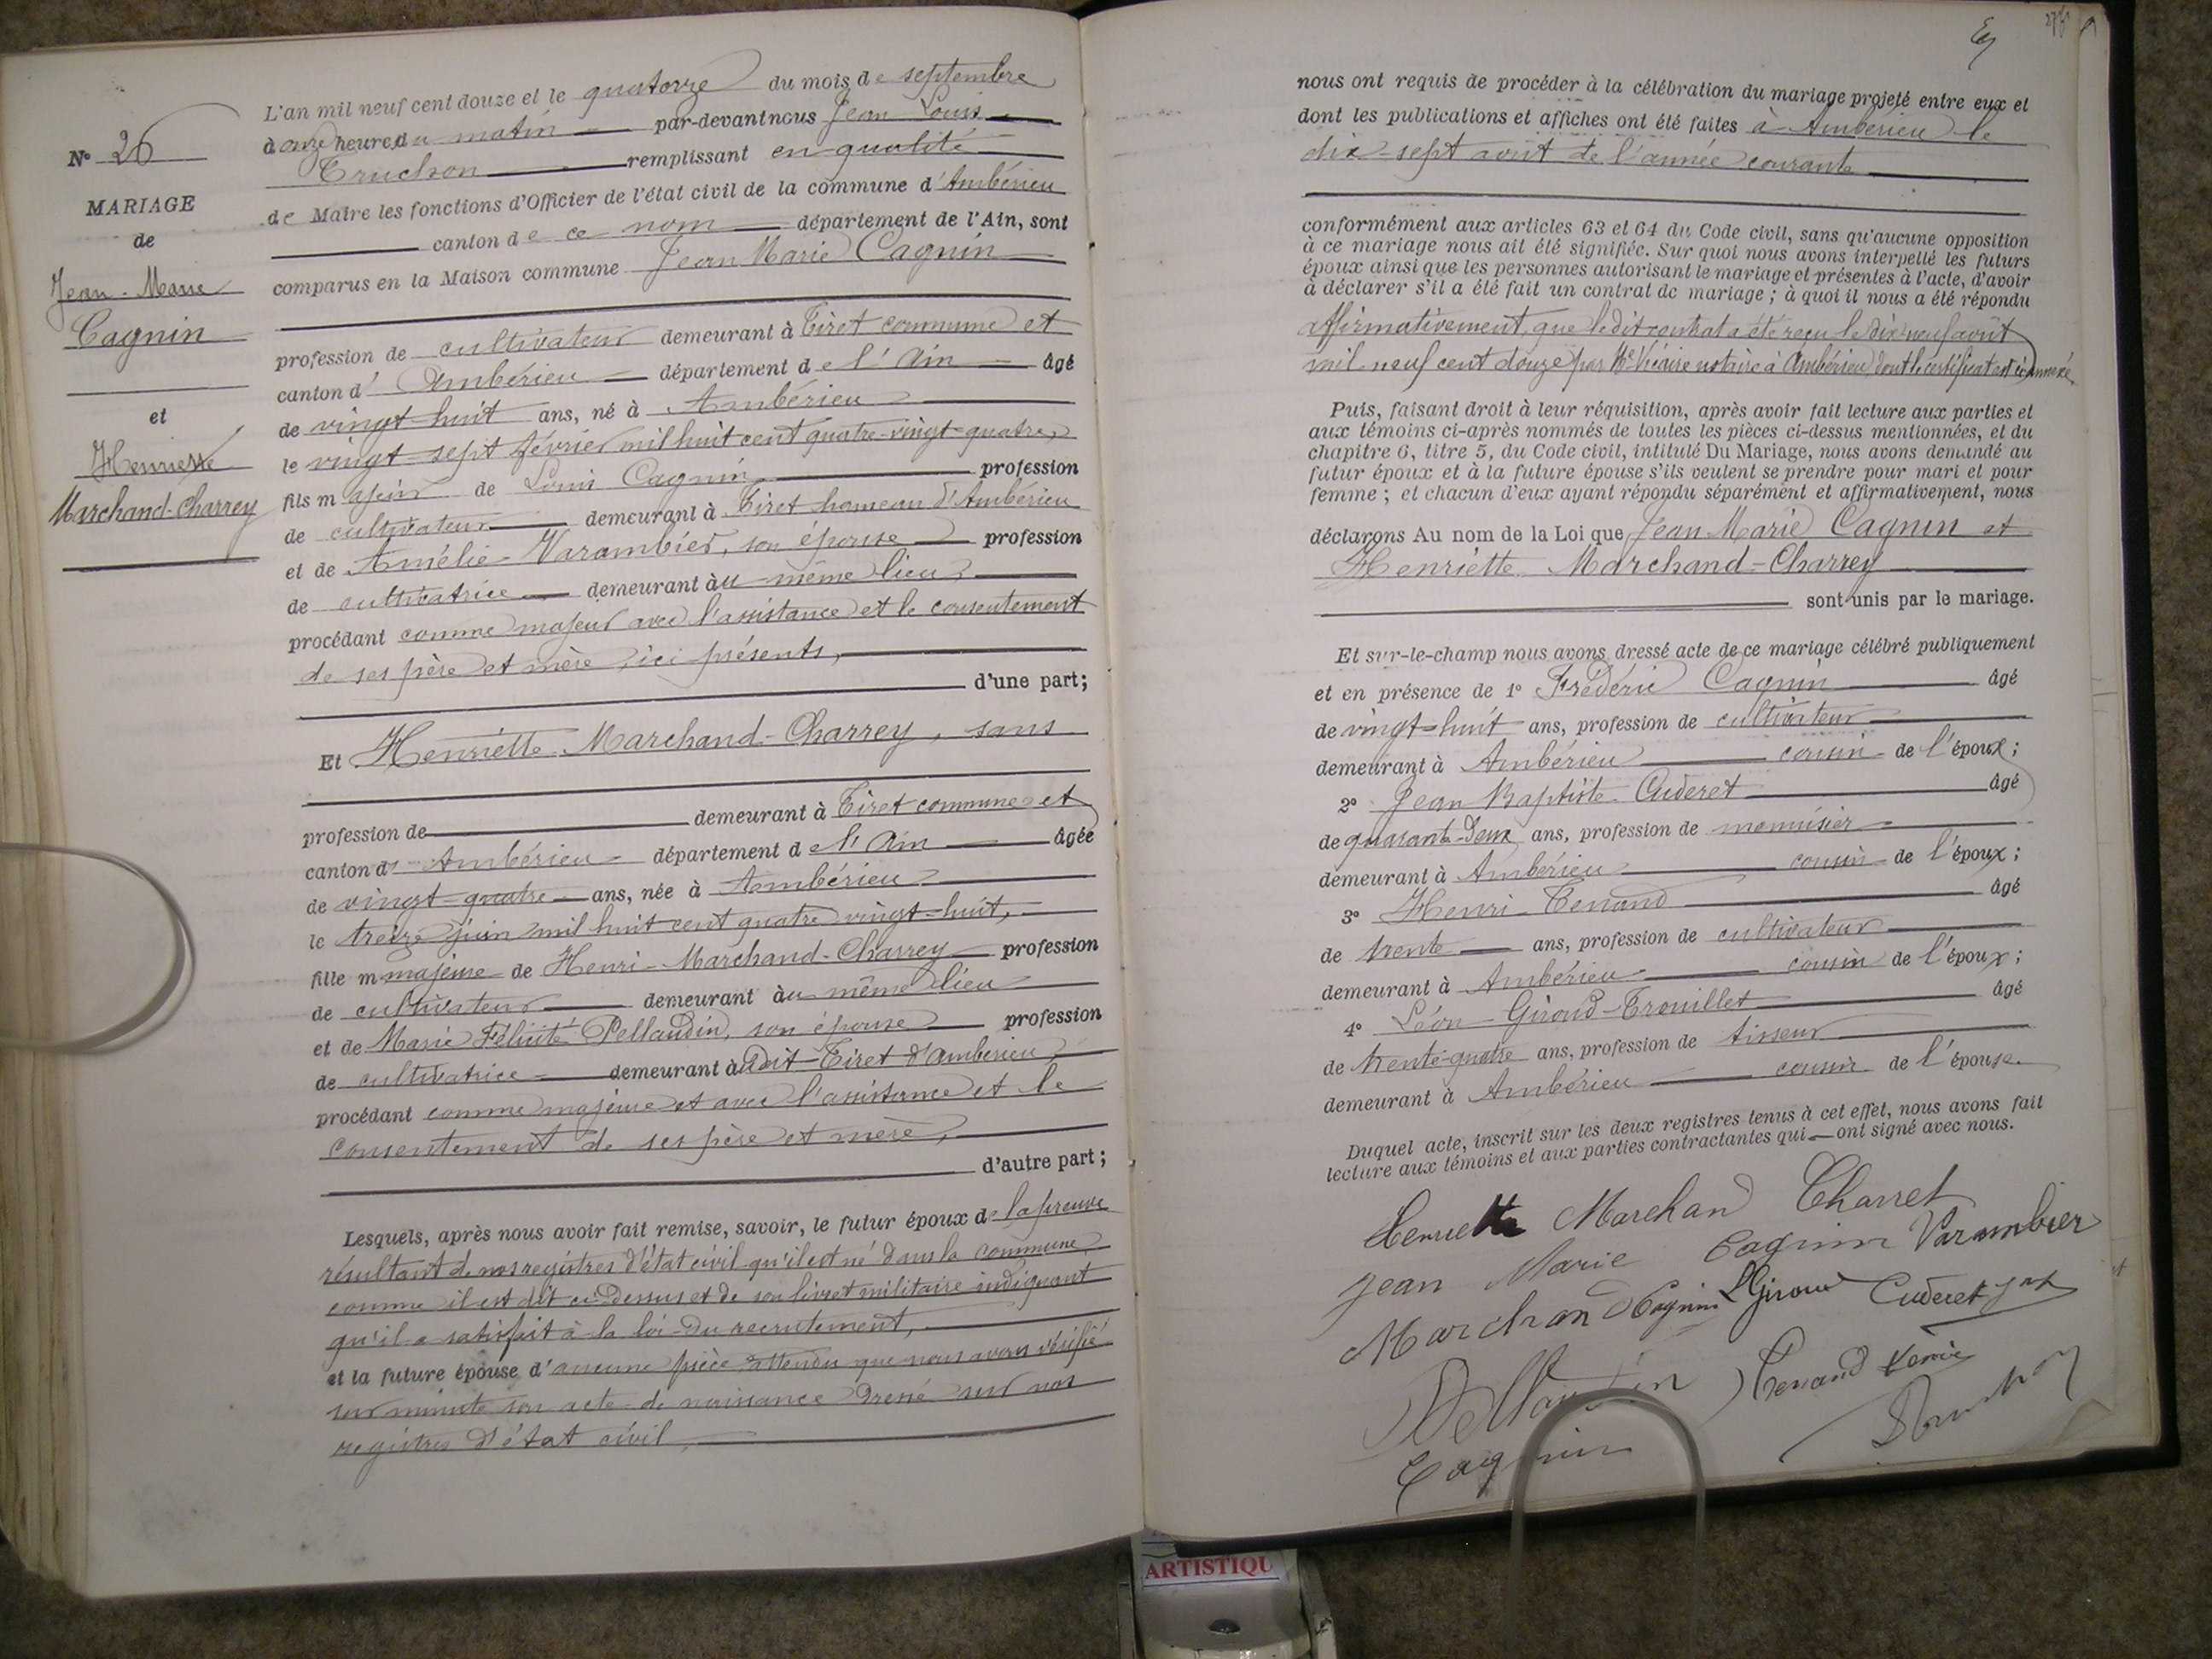 N° 26
MARIAGE
de
Jean-Marie
Cagnin
et
Henriette
Marchand-Charrey
L'an mil neuf cent douze et le quatorze du mois de septembre
à onze heure du matin par-devant nous Jean Louis
Truchon remplissant en qualité
de Maire les fonctions d'Officier de l'état civil de la commune d'Ambérieu
canton de ce nom département de l'Ain, sont
comparus en la Maison commune Jean Marie Cagnin
profession de cultivateur demeurant à Tiret commune et
canton d' Ambérieu département de l'Ain âgé
de vingt-huit ans, né à Ambérieu
le vingt-sept février mil huit cent quatre-vingt-quatre,
fils majeur de Louis Cagnin profession
de cultivateur demeurant à Tiret hameau d'Ambérieu
et de Amélie Varambier, son épouse profession
de cultivatrice demeurant au même lieu,
procédant comme majeur avec l'assistance et le consentement
de ses père et mère, ici présents,
d'une part;
Et Henriette Marchand-Charrey, sans
profession de demeurant à Tiret commune et
canton d' Ambérieu département de l'Ain âgée
de vingt-quatre ans, née à Ambérieu
le treize juin mil huit cent quatre vingt-huit,
fille m majeure de Henri Marchand-Charrey profession
de cultivateur demeurant au même lieu
et de Marie Félicité Pellaudin, son épouse profession
de cultivatrice demeurant à dit Tiret d'Ambérieu,
procédant comme majeure et avec l'assistance et le
consentement de ses père et mère,
d'autre part;
Lesquels, après nous avoir fait remise, savoir, le futur époux de la preuve
résultant de nos registres d'état civil qu'il est né dans la commune
comme il est dit ci-dessus et de son livret militaire indiquant
qu'il a satisfait à la loi du recrutement,
et la future épouse d'aucune pièce attendu que nous avons vérifié
sur minute son acte de naissance dressé sur nos
registres d'état civil,
nous ont requis de procéder à la célébration du mariage projeté entre eux et
dont les publications et affiches ont été faites à Ambérieu le
dix-sept août de l'année courante
conformément aux articles 63 et 64 du Code civil, sans qu'aucune opposition
à ce mariage nous ait été signifiée. Sur quoi nous avons interpellé les futurs
époux ainsi que les personnes autorisant le mariage et présentes à l'acte, d'avoir
à déclarer s'il a été fait un contrat de mariage; à quoi il nous a été répondu
affirmativement, que ledit contrat a été reçu le dix neuf août
mil neuf cent douze par Me Vicaire notaire à Ambérieu, dont le certificat est ci annexé
Puis, faisant droit à leur réquisition, après avoir fait lecture aux parties et
aux témoins ci-après nommés de toutes les pièces ci-dessus mentionnées, et du
chapitre 6, titre 5, du Code civil, intitulé Du Mariage, nous avons demandé au
futur époux et à la future épouse s'ils veulent se prendre pour mari et pour
femme; et chacun d'eux ayant répondu séparément et affirmativement, nous
déclarons Au nom de la Loi que Jean Marie Cagnin et
Henriette Marchand-Charrey
sont unis par le mariage.
Et sur-le-champ nous avons dressé acte de ce mariage célébré publiquement
et en présence de 1° Frédéric Cagnin âgé
de vingt-huit ans, profession de cultivateur
demeurant à Ambérieu cousin de l'époux;
2° Jean Baptiste Cuderet âgé
de quarante-deux ans, profession de menuisier
demeurant à Ambérieu cousin de l'époux;
3° Henri Tenand âgé
de trente ans, profession de cultivateur
demeurant à Ambérieu cousin de l'époux;
4° Léon Giroud-Trouillet âgé
de trente-quatre ans, profession de tisseur
demeurant à Ambérieu cousin de l'épouse.
Duquel acte, inscrit sur les deux registres tenus à cet effet, nous avons fait
lecture aux témoins et aux parties contractantes qui ont signé avec nous.
Henriette Marchand Charret
Jean Marie Cagnin Varambier
Marchand Cagnin LGiroud Cuderet
Pellaudin Tenand Henri
Cagnin Truchon
ARTISTIQU